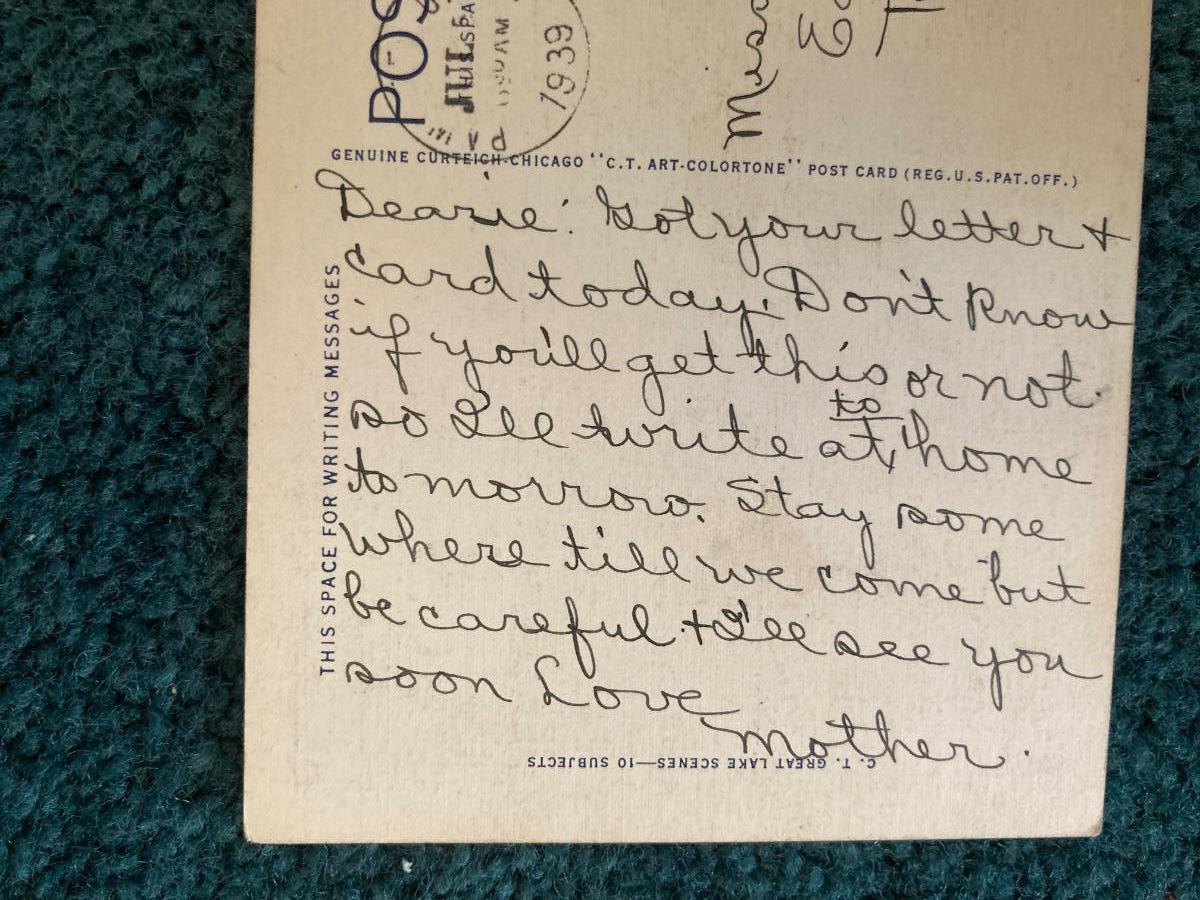 POS
JUL
AM
1939
PA
Miss
E
GENUINE CURTEICH-CHICAGO "C.T. ART-COLORTONE" POST CARD (REG.U.S.PAT.OFF.)
THIS SPACE FOR WRITING MESSAGES
Dearie: Got your letter +
card today. Don't Know
if you'll get this or not.
so I'll write at to home
tomorrow. Stay some
where till we come but
be careful + I'll see you
soon Love
Mother.
C. T. GREAT LAKE SCENES—10 SUBJECTS